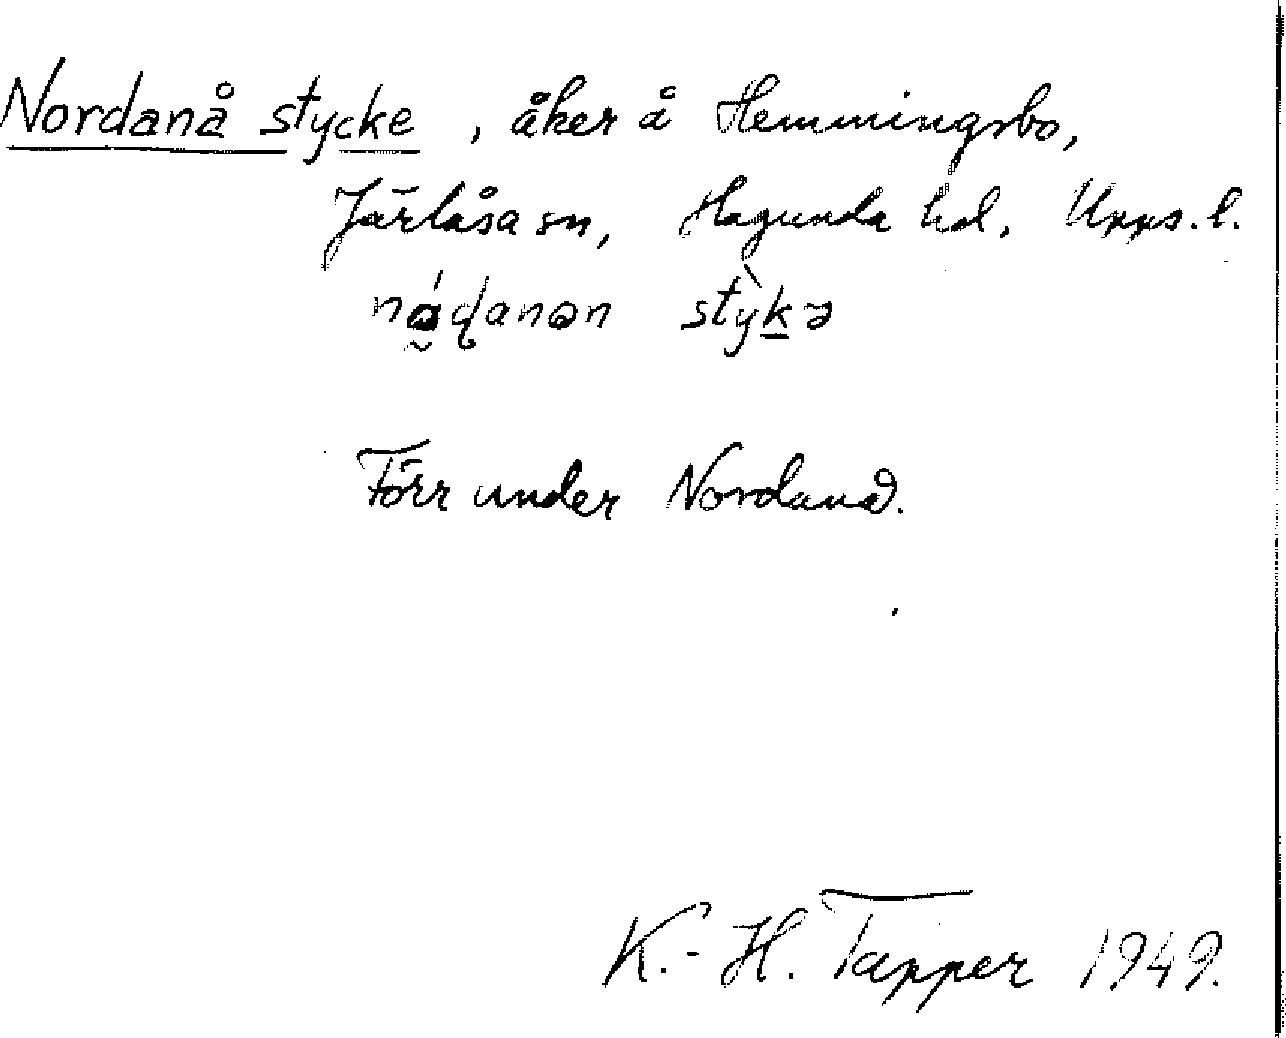 Nordanå stycke, åker å Hemmingsbo,
Järlåsa sn, Hagunda hd, Upps. l.
stỳkə
Förr under Nordanå.
K.-H. Tapper 1949.